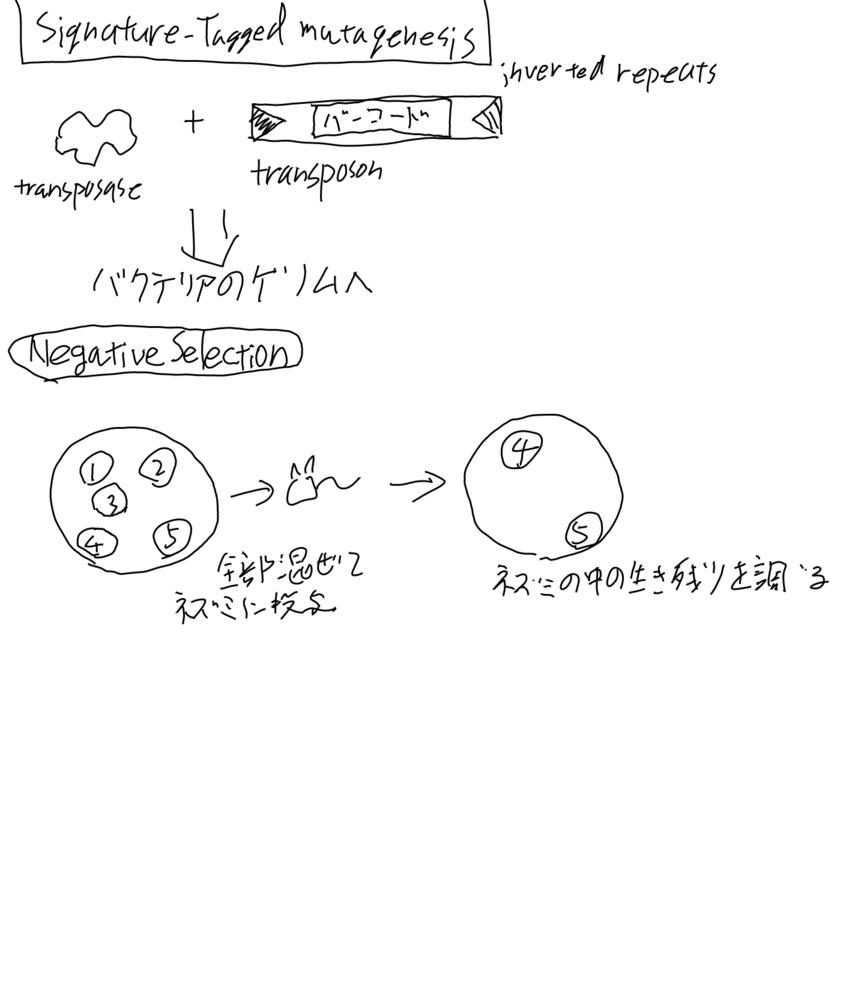 Signature-Tagged mutagenesis
inverted repeats
+
バーコード
transposase
transposon
バクテリアのゲノムへ
Negative Selection
① ②
③
④ ⑤
④
⑤
全部混ぜて
ネズミに投与
ネズミの中の生き残りを調べる